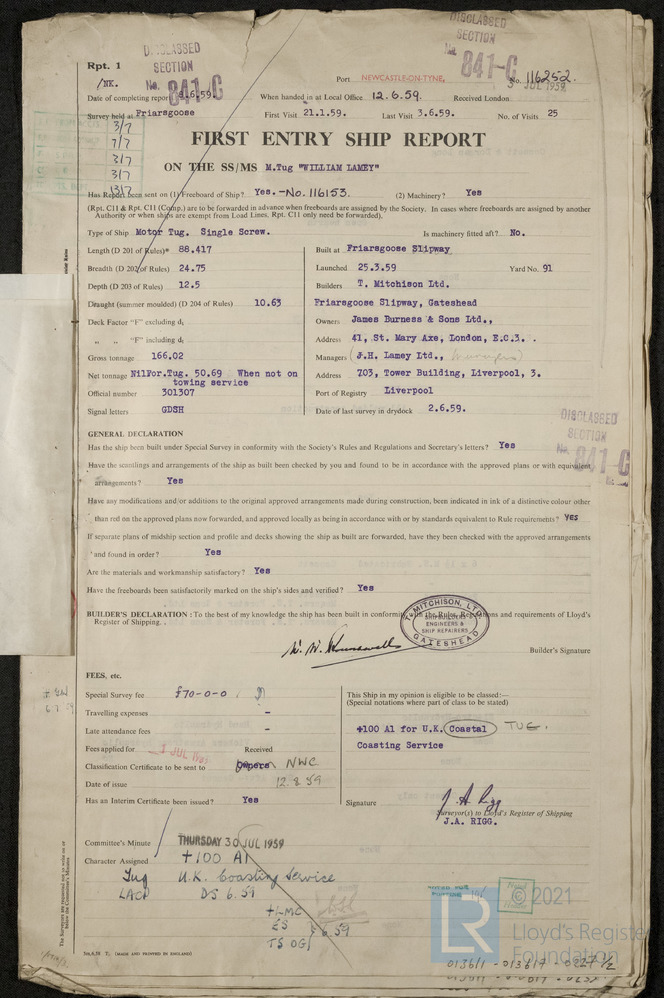 DISCLASSED
SECTION
No. 841-G
DISCLASSED
SECTION
No. 841-G
Rpt. 1
/NK.
Port NEWCASTLE-ON-TYNE,
No. 116252.
3 JUL 1959
Date of completing report 6.59. When handed in at Local Office 12.6.59. Received London
Survey held at Friarsgoose First Visit 21.1.59. Last Visit 3.6.59. No. of Visits 25
3/7
7/7
3/7
3/7
13/7
FIRST ENTRY SHIP REPORT
ON THE SS/MS M.Tug "WILLIAM LAMEY"
Has Report been sent on (1) Freeboard of Ship? Yes. - No. 116153. (2) Machinery? Yes
(Rpt. C11 & Rpt. C11 (Comp.) are to be forwarded in advance when freeboards are assigned by the Society. In cases where freeboards are assigned by another
Authority or when ships are exempt from Load Lines, Rpt. C11 only need be forwarded).
Type of Ship Motor Tug. Single Screw. Is machinery fitted aft? No.
Length (D 201 of Rules) 88.417
Breadth (D 202 of Rules) 24.75
Depth (D 203 of Rules) 12.5
Draught (summer moulded) (D 204 of Rules) 10.63
Deck Factor "F" excluding d₁
„ „ "F" including d₁
Gross tonnage 166.02
Net tonnage Nil For. Tug. 50.69 When not on
towing service
Official number 301307
Signal letters GDSH
Built at Friarsgoose Slipway
Launched 25.3.59 Yard No. 91
Builders T. Mitchison Ltd.
Friarsgoose Slipway, Gateshead
Owners James Burness & Sons Ltd.,
Address 41, St. Mary Axe, London, E.C.3.
Managers (J.H. Lamey Ltd., managers)
Address 703, Tower Building, Liverpool, 3.
Port of Registry Liverpool
Date of last survey in drydock 2.6.59.
DISCLASSED
SECTION
No. 841-G
GENERAL DECLARATION
Has the ship been built under Special Survey in conformity with the Society's Rules and Regulations and Secretary's letters? Yes
Have the scantlings and arrangements of the ship as built been checked by you and found to be in accordance with the approved plans or with equivalent
arrangements? Yes
Have any modifications and/or additions to the original approved arrangements made during construction, been indicated in ink of a distinctive colour other
than red on the approved plans now forwarded, and approved locally as being in accordance with or by standards equivalent to Rule requirements? Yes
If separate plans of midship section and profile and decks showing the ship as built are forwarded, have they been checked with the approved arrangements
and found in order? Yes
Are the materials and workmanship satisfactory? Yes
Have the freeboards been satisfactorily marked on the ship's sides and verified? Yes
BUILDER'S DECLARATION : To the best of my knowledge the ship has been built in conformity with the Rules, Regulations and requirements of Lloyd's
Register of Shipping.
T. MITCHISON, LTD
ENGINEERS &
SHIP REPAIRERS
GATESHEAD
Builder's Signature
FEES, etc.
Special Survey fee £70-0-0
Travelling expenses -
Late attendance fees -
Fees applied for 1 JUL 1959 Received
Classification Certificate to be sent to Owners NWC
Date of issue 12.8.59
Has an Interim Certificate been issued? Yes
This Ship in my opinion is eligible to be classed:—
(Special notations where part of class to be stated)
+100 A1 for U.K. Coastal TUG.
Coasting Service
Signature J. A. Rigg
Surveyor(s) to Lloyd's Register of Shipping
J.A. RIGG.
Committee's Minute THURSDAY 30 JUL 1959
Character Assigned +100 A1
Tug U.K. Coasting Service
LACP DS 6.59
+LMC
ES 6.59
TS OG
5m,6.58 T. (MADE AND PRINTED IN ENGLAND)
© 2021
LR
Lloyd's Register
Foundation
013611 - 013617 - 0227 1/2